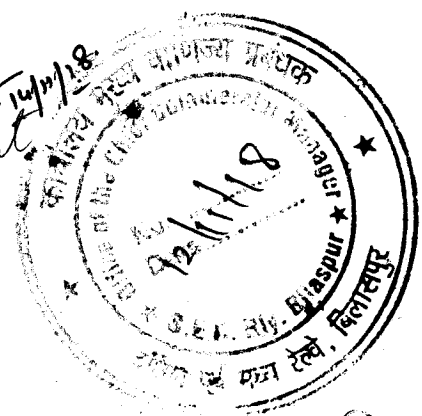 14/11/18
कार्यालय मुख्य वाणिज्य प्रबंधक
Office of the Chief Commercial Manager
No.
12/11/18
★ S.E.C. Rly. Bilaspur ★
★ दक्षिण पूर्व मध्य रेल्वे, बिलासपुर ★